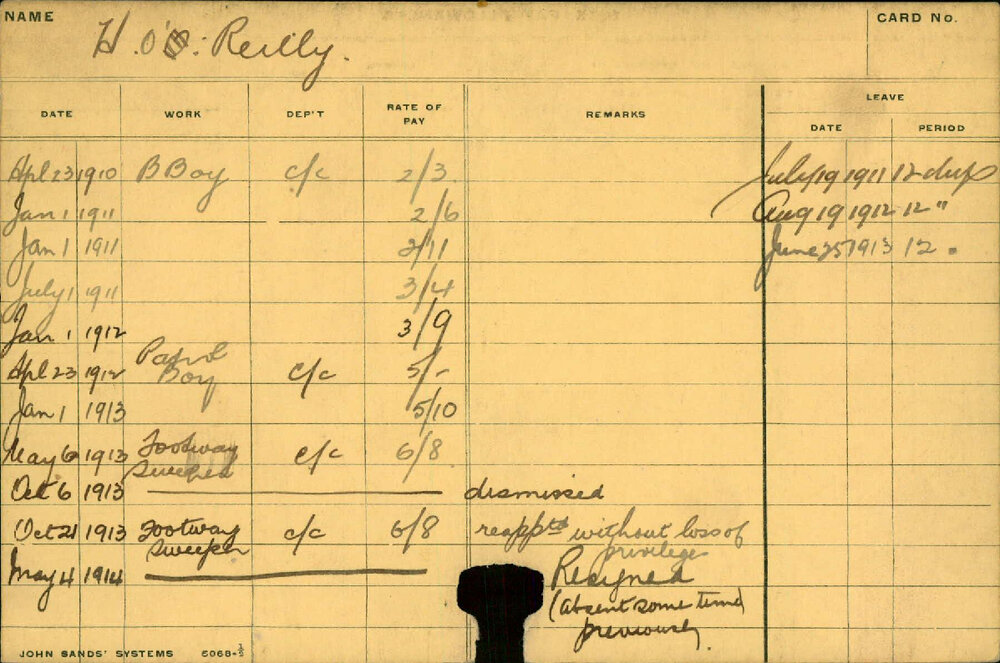 NAME
CARD No.
H. O'B: Reilly.
DATE WORK DEP'T RATE OF PAY REMARKS LEAVE
DATE PERIOD
Apl 23 1910 B Boy c/c 2/3 July 19 1911 12 days
Jan 1 1911 2/6 Aug 19 1912 12 "
Jan 1 1911 2/11 June 25 1913 12 "
July 1 1911 3/4
Jan 1 1912 3/9
Apl 23 1912 Patrol Boy c/c 5/-
Jan 1 1913 5/10
May 6 1913 Footway Sweeper c/c 6/8
Oct 6 1913 dismissed
Oct 21 1913 Footway Sweeper c/c 6/8 reapptd without loss of
privilege
May 4 1914 Resigned
(absent some time
previously
JOHN SANDS' SYSTEMS 5068-½